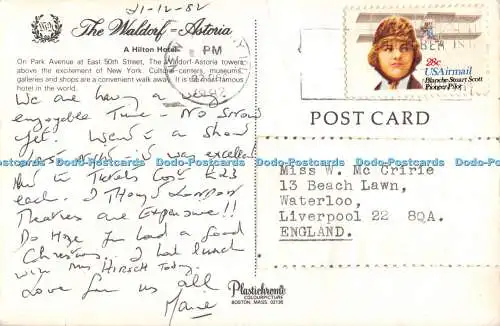 21-12-82
The Waldorf-Astoria
A Hilton Hotel
On Park Avenue at East 50th Street, The Waldorf-Astoria towers
above the excitement of New York. Cultural centers, museums,
galleries and shops are a convenient walk away. It is the most famous
hotel in the world.
We are having a very
enjoyable time - No snow
yet. Went to a show
last night. It was excellent
And the Tickets cost £23
each. I Thought London
Theatres are Expensive!!
Do Hope you had a good
Christmas. I had lunch
with Mrs HIRSCH Today.
Love from us all
PM
1982
28c
USAirmail
Blanche Stuart Scott
Pioneer Pilot
POST CARD
Miss W. Mc Cririe
13 Beach Lawn,
Waterloo,
Liverpool 22 8QA.
ENGLAND.
Plastichrome
COLOURPICTURE
BOSTON, MASS. 02130
www.Postcards-Shop.com